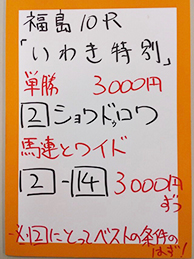 福島10R
「いわき特別」
単勝 3000円
2 ショウドゥロワ
馬連とワイド
2-14 3000円
ずつ
にとってベストの条件の
はず!